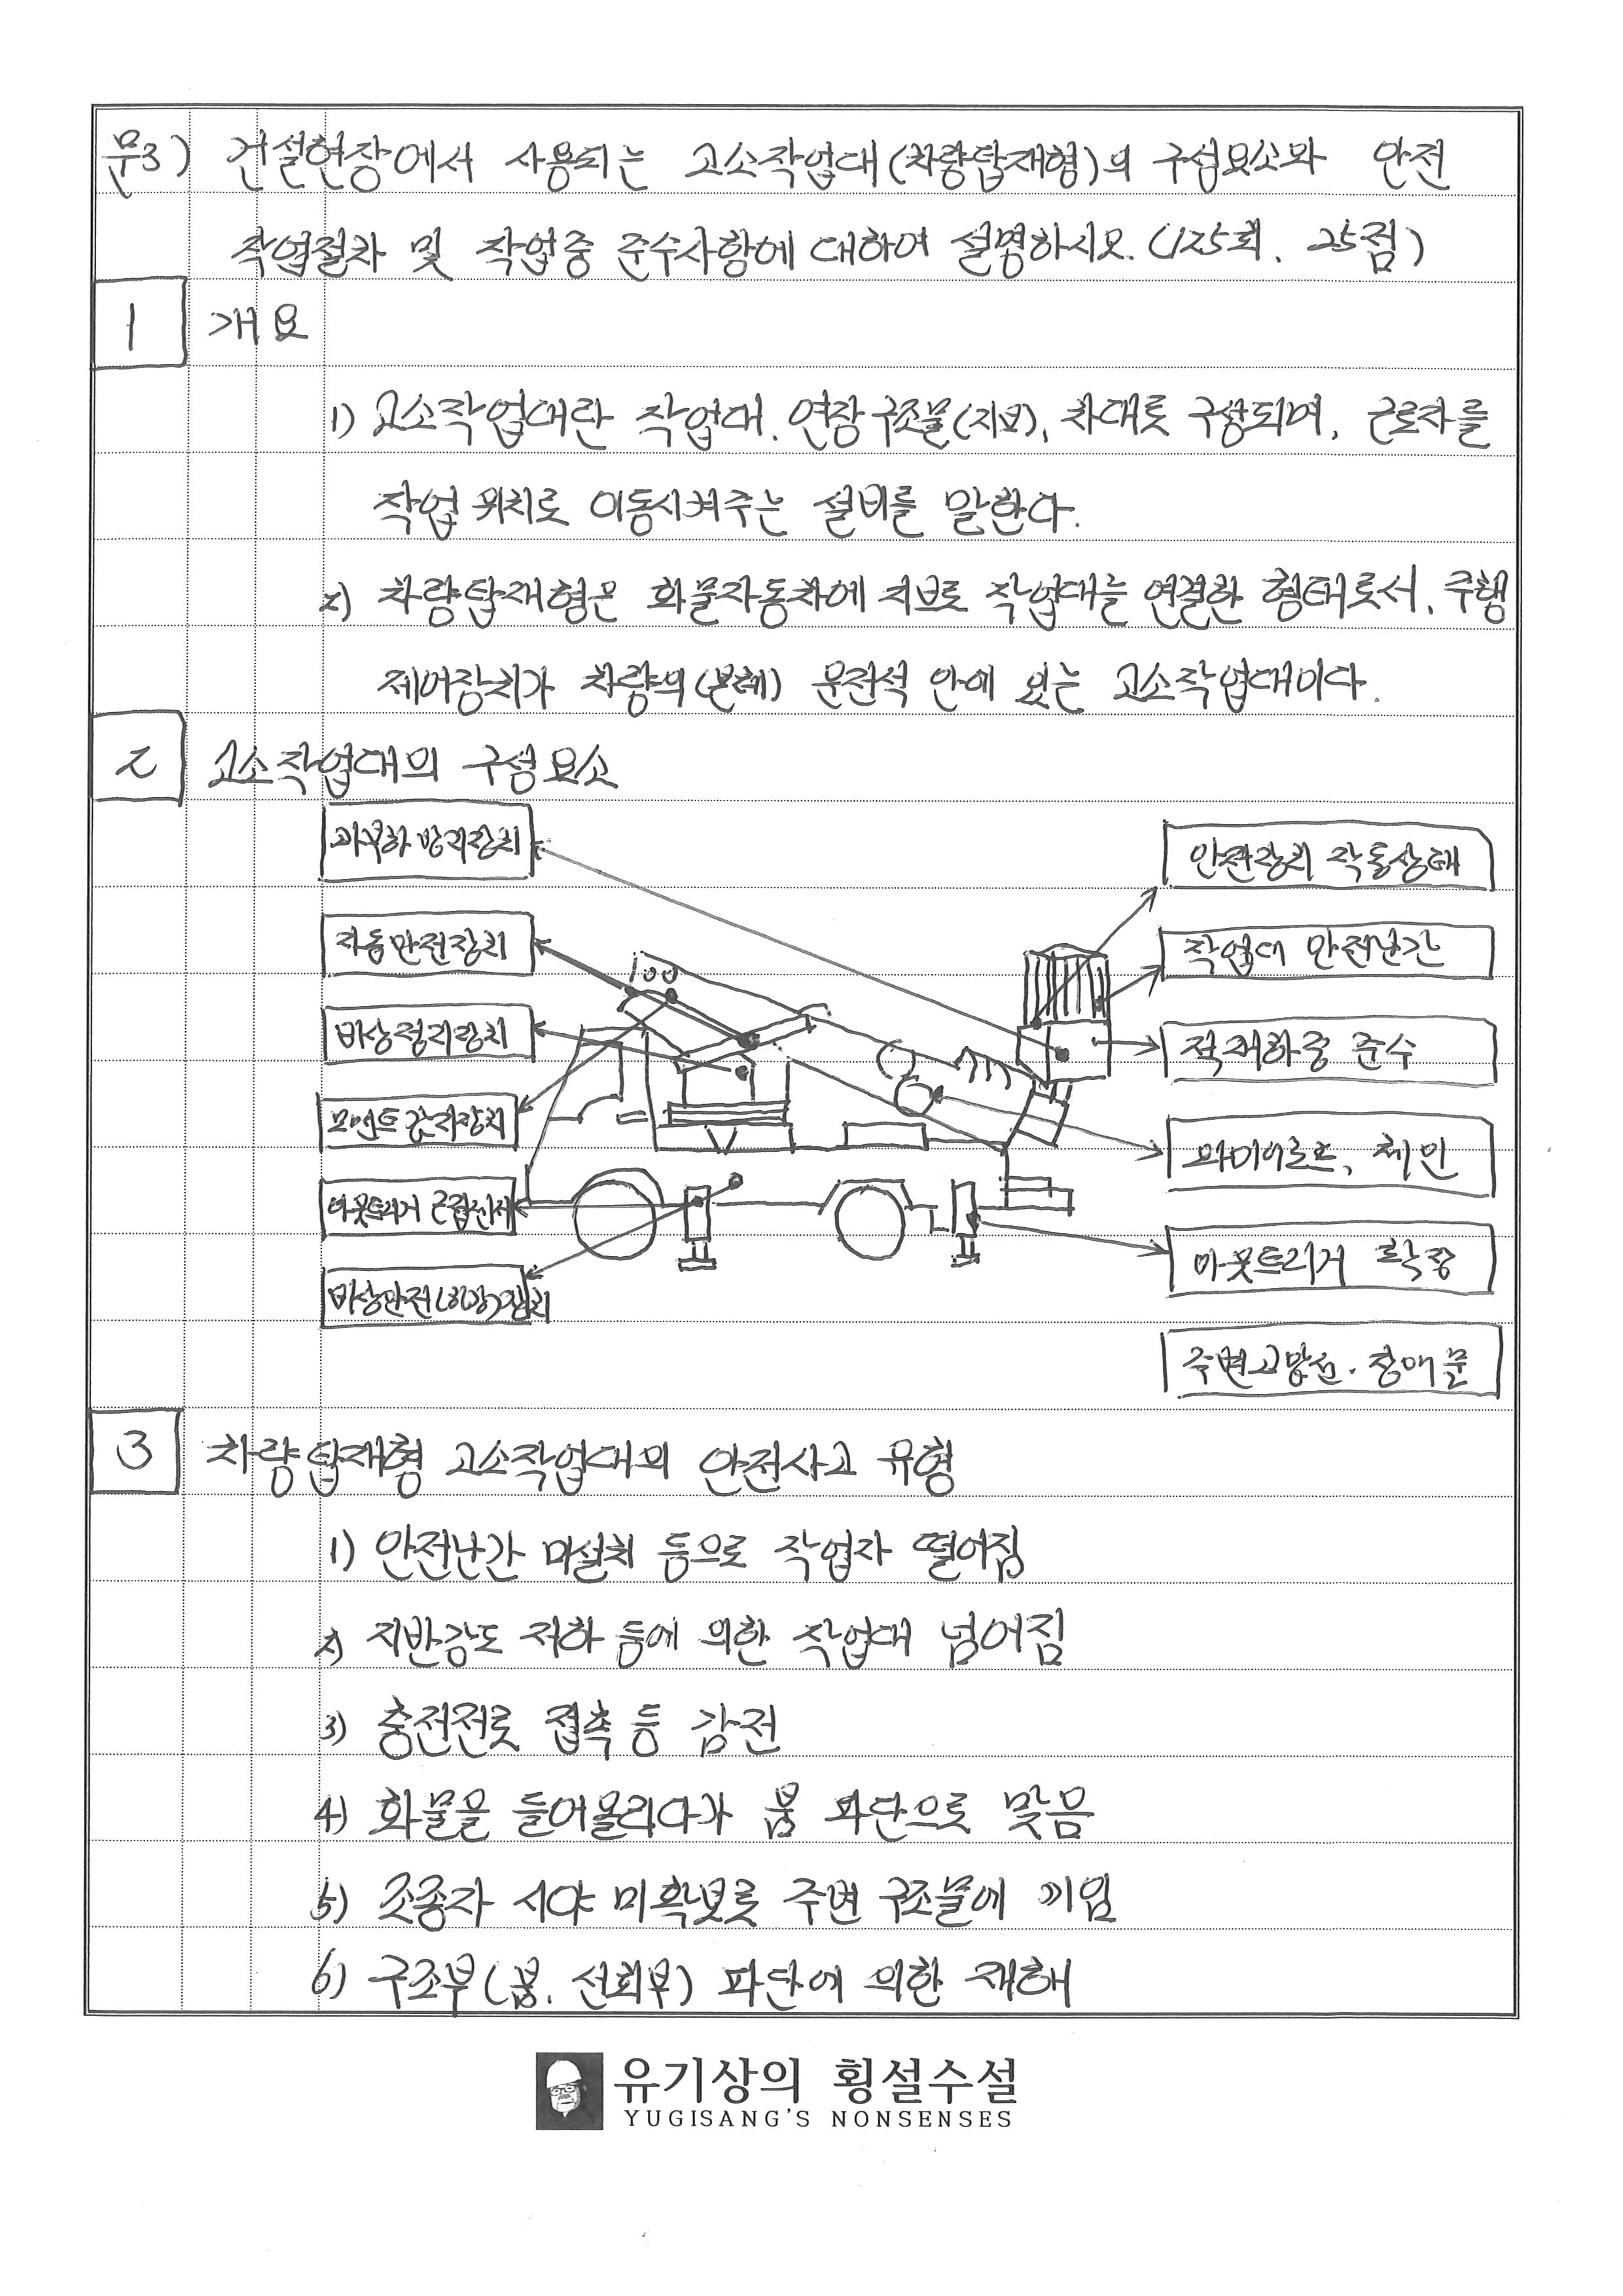 문3) 건설현장에서 사용되는 고소작업대(차량탑재형)의 구성요소와 안전
작업절차 및 작업중 준수사항에 대하여 설명하시오. (125회. 25점)
1 개요
1) 고소작업대란 작업대. 연장구조물(지브), 차대로 구성되며, 근로자를
작업 위치로 이동시켜주는 설비를 말한다.
2) 차량탑재형은 화물자동차에 지브로 작업대를 연결한 형태로서, 주행
제어장치가 차량의(본체) 운전석 안에 있는 고소작업대이다.
2 고소작업대의 구성요소
과부하 방지장치
안전장치 작동상태
자동안전장치
작업대 안전난간
비상정지장치
적재하중 준수
모멘트감지장치
와이어로프, 체인
아웃트리거
아웃트리거 확장
비상안전(하강)장치
주변고압선. 장애물
3 차량탑재형 고소작업대의 안전사고 유형
1) 안전난간 미설치 등으로 작업자 떨어짐
2) 지반강도 저하 등에 의한 작업대 넘어짐
3) 충전전로 접촉 등 감전
4) 화물을 들어올리다가 붐 파단으로 맞음
5) 조종자 시야 미확보로 주변 구조물에 끼임
6) 구조부(붐. 선회부) 파단에 의한 재해
유기상의 횡설수설
YUGISANG'S NONSENSES